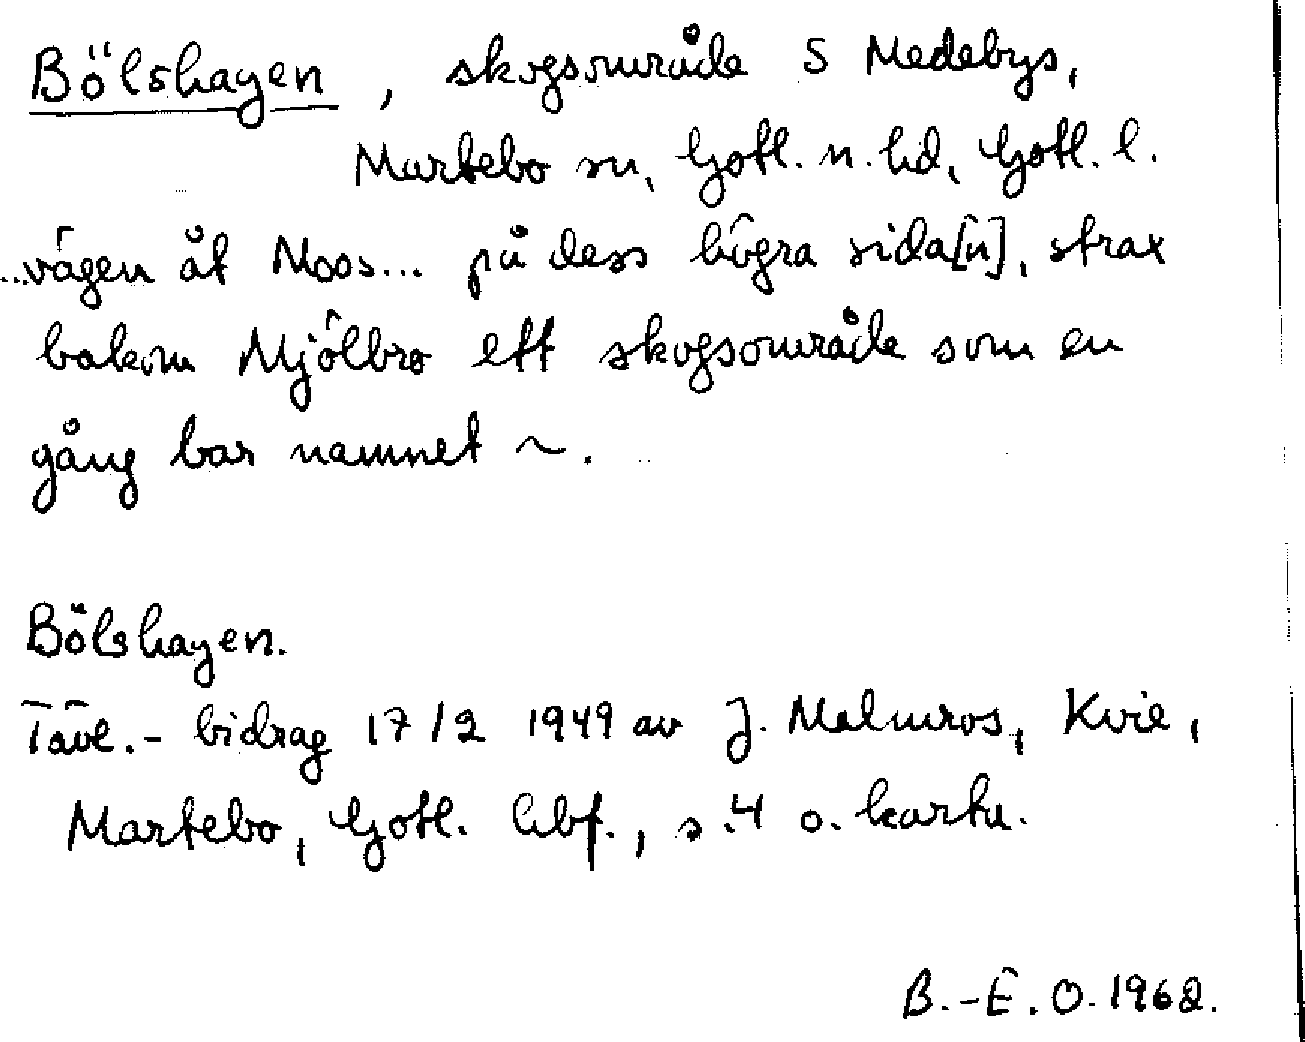 Bölshagen, skogsområde S Medebys,
Martebo sn, Gotl. n. hd, Gotl. l.
...vägen åt Moos... på dess högra sida[n], strax
bakom Mjölbro ett skogsområde som en
gång bar namnet ~.
Bölshagen.
Tävl.- bidrag 17/2 1949 av J. Malmros, Kvie,
Martebo, Gotl. hbf., s. 4 o. karta.
B.-E. O. 1962.